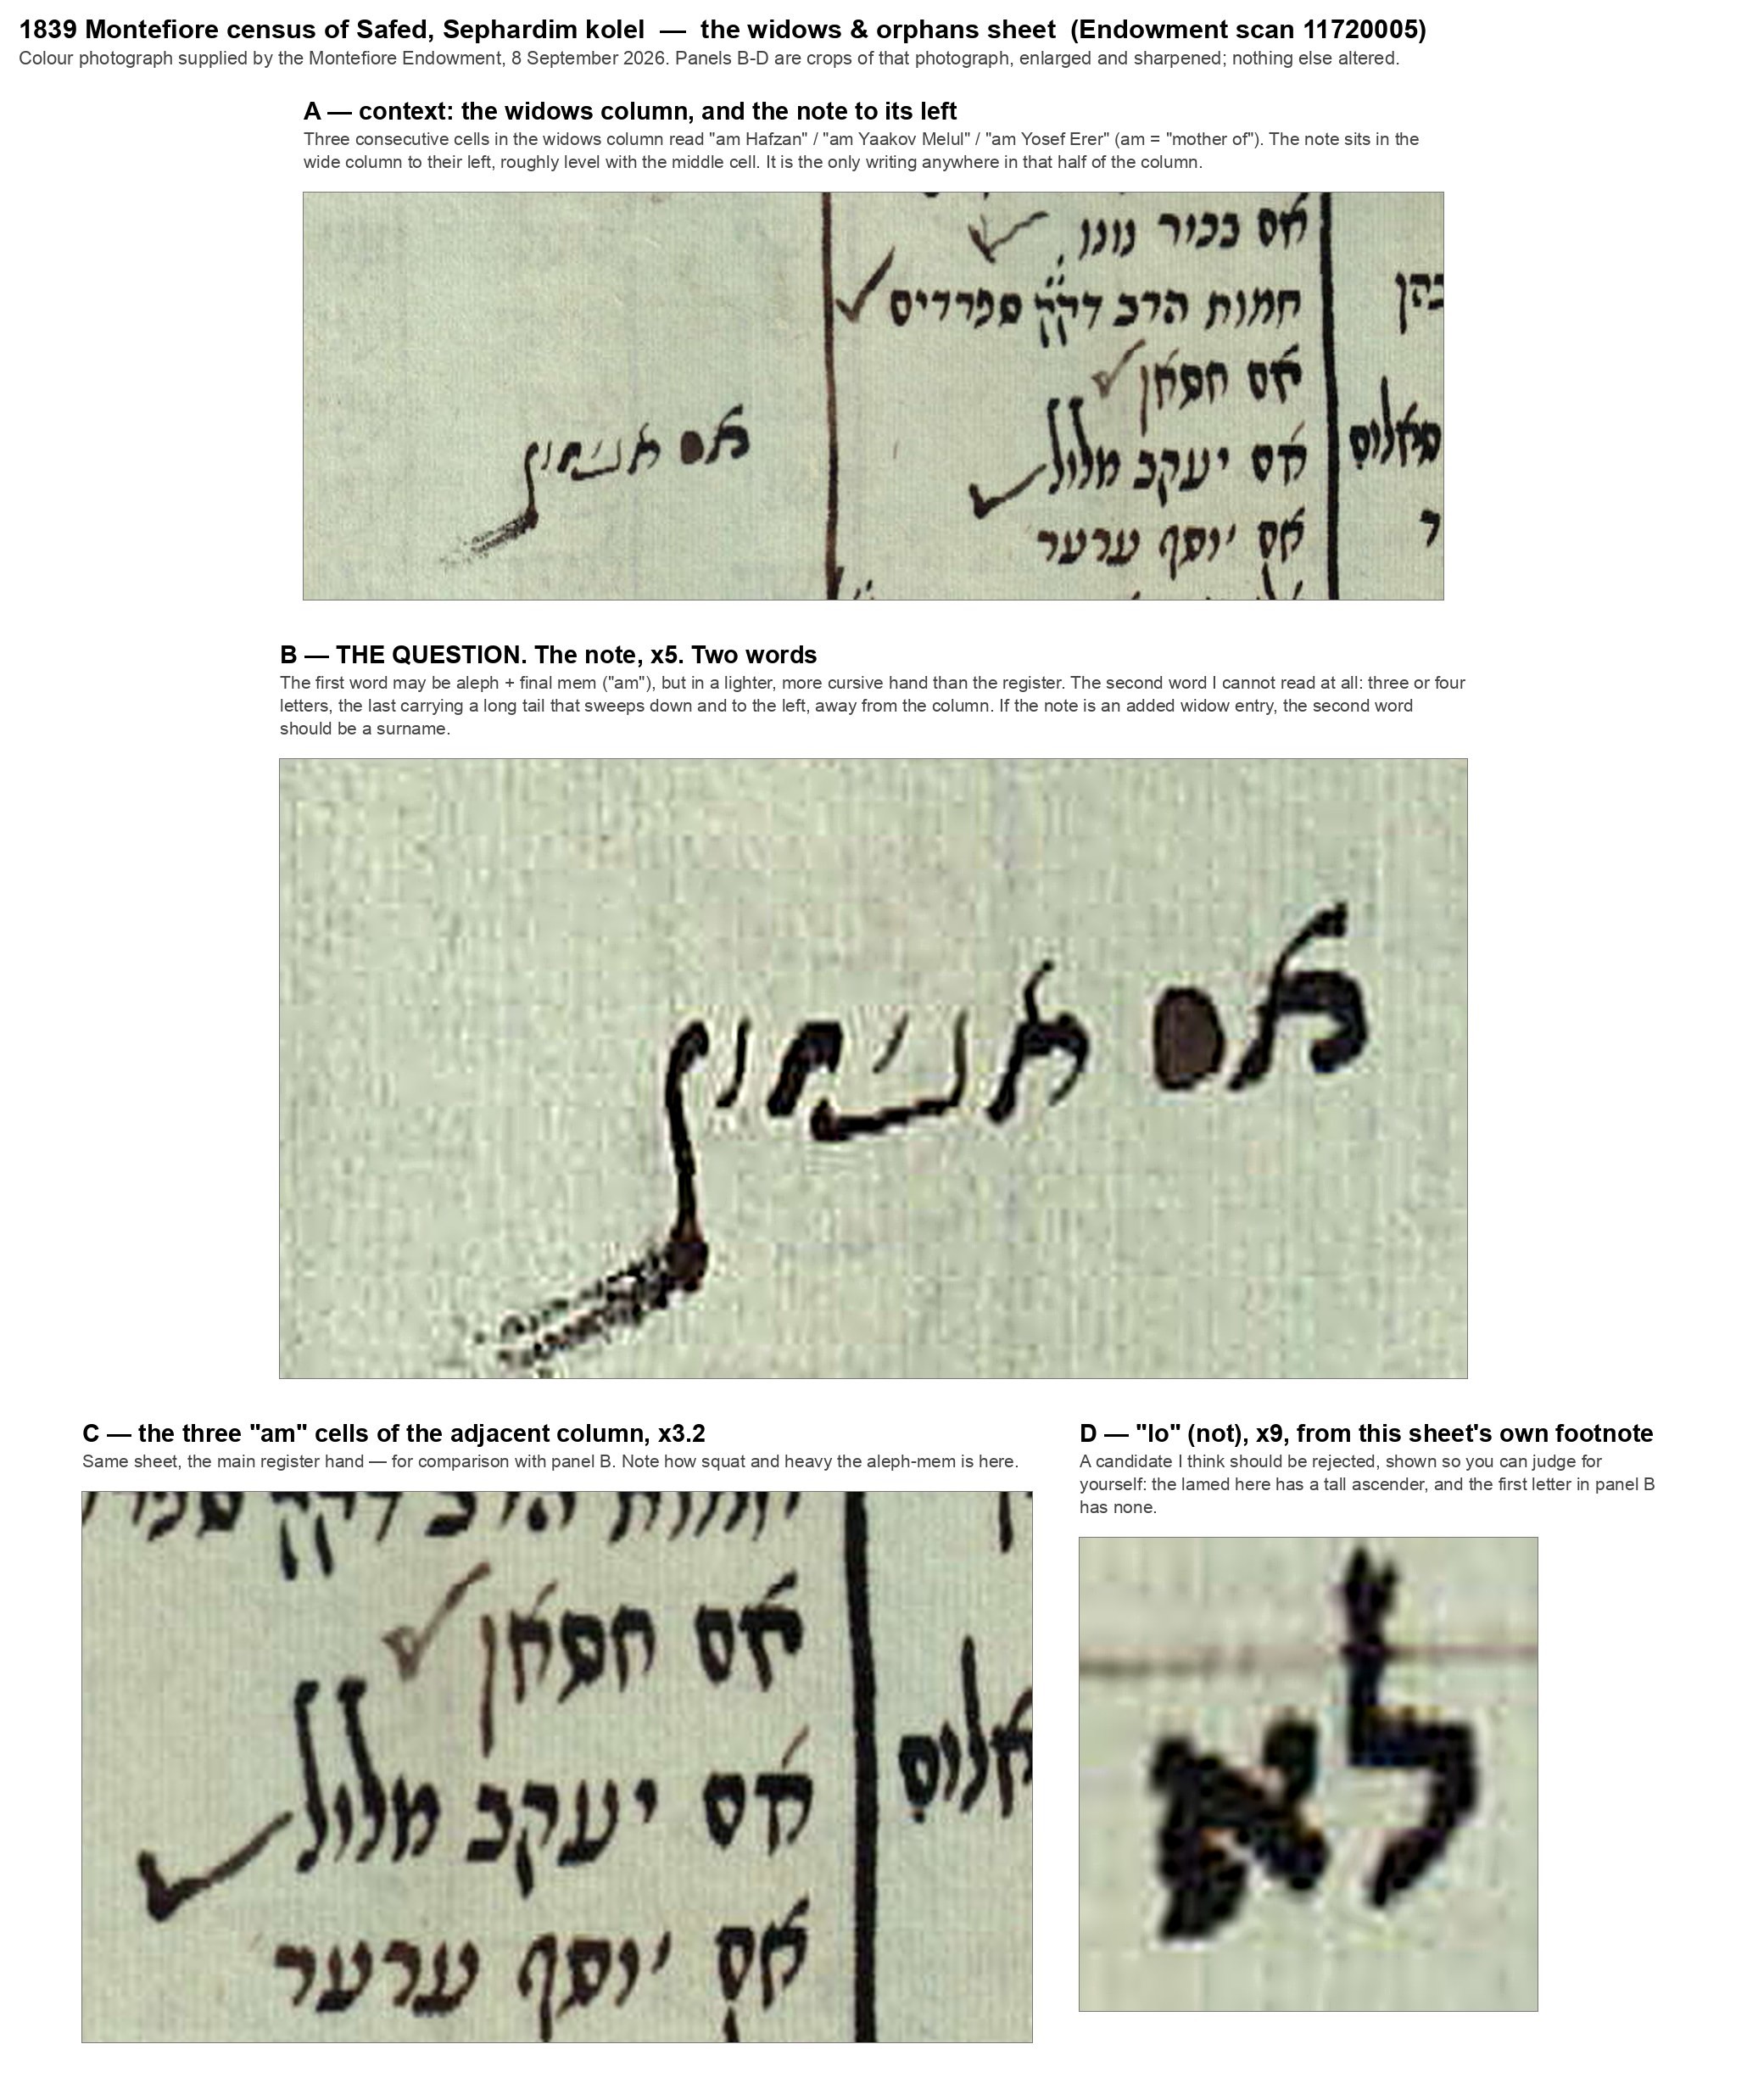 1839 Montefiore census of Safed, Sephardim kolel — the widows & orphans sheet (Endowment scan 11720005)
Colour photograph supplied by the Montefiore Endowment, 8 September 2026. Panels B-D are crops of that photograph, enlarged and sharpened; nothing else altered.
A — context: the widows column, and the note to its left
Three consecutive cells in the widows column read "am Hafzan" / "am Yaakov Melul" / "am Yosef Erer" (am = "mother of"). The note sits in the
wide column to their left, roughly level with the middle cell. It is the only writing anywhere in that half of the column.
אם בכור נונו
חמות הרב דק״ק ספרדים
כהן
אם חפאן
אם
אם יעקב מלול
אם יוסף ערער
B — THE QUESTION. The note, x5. Two words
The first word may be aleph + final mem ("am"), but in a lighter, more cursive hand than the register. The second word I cannot read at all: three or four
letters, the last carrying a long tail that sweeps down and to the left, away from the column. If the note is an added widow entry, the second word
should be a surname.
אם
C — the three "am" cells of the adjacent column, x3.2
Same sheet, the main register hand — for comparison with panel B. Note how squat and heavy the aleph-mem is here.
חמות הרב דק״ק
אם חפאן
אם יעקב מלול
אם יוסף ערער
D — "lo" (not), x9, from this sheet's own footnote
A candidate I think should be rejected, shown so you can judge for
yourself: the lamed here has a tall ascender, and the first letter in panel B
has none.
לא